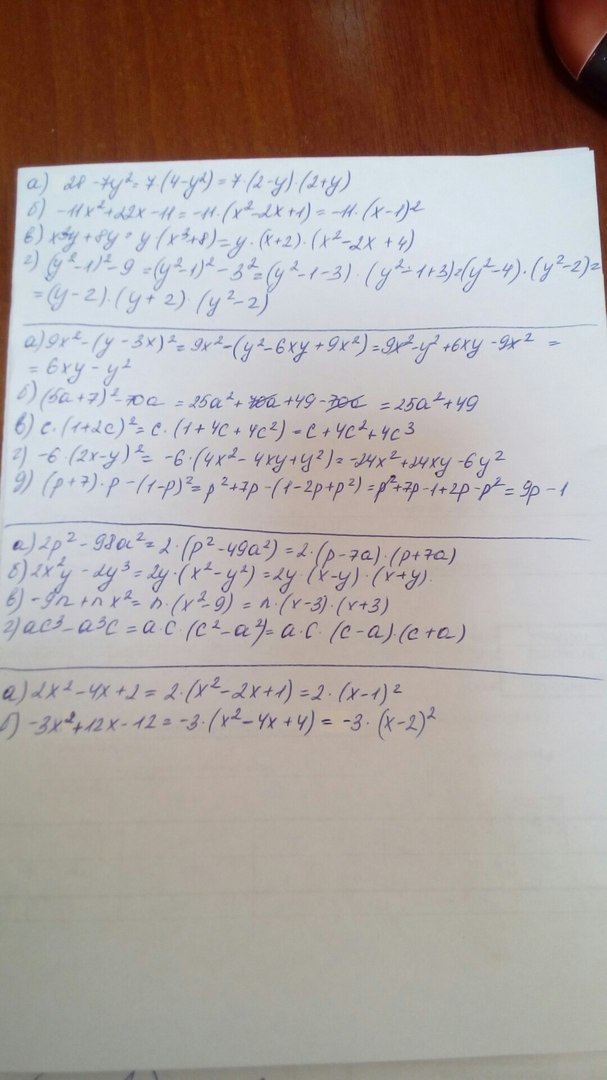 а) 28-7y²=7(4-y²)=7·(2-y)·(2+y)
б) -11x²+22x-11=-11·(x²-2x+1)=-11·(x-1)²
в) x³y+8y=y(x³+8)=y·(x+2)·(x²-2x+4)
г) (y²-1)²-9=(y²-1)²-3²=(y²-1-3)·(y²-1+3)=(y²-4)·(y²-2)=
=(y-2)·(y+2)·(y²-2)
а) 9x²-(y-3x)²=9x²-(y²-6xy+9x²)=9x²-y²+6xy-9x² =
=6xy-y²
б) (5a+7)²-70a=25a²+70a+49-70a=25a²+49
в) c·(1+2c)²=c·(1+4c+4c²)=c+4c²+4c³
г) -6·(2x-y)²=-6·(4x²-4xy+y²)=-24x²+24xy-6y²
д) (p+7)·p-(1-p)²=p²+7p-(1-2p+p²)=p²+7p-1+2p-p²=9p-1
а) 2p²-98a²=2·(p²-49a²)=2·(p-7a)·(p+7a)
б) 2x²y-2y³=2y·(x²-y²)=2y·(x-y)·(x+y).
в) -9n+nx²=n·(x²-9)=n·(x-3)·(x+3)
г) ac³-a³c=a·c·(c²-a²)=a·c·(c-a)·(c+a)
а) 2x²-4x+2=2·(x²-2x+1)=2·(x-1)²
б) -3x²+12x-12=-3·(x²-4x+4)=-3·(x-2)²